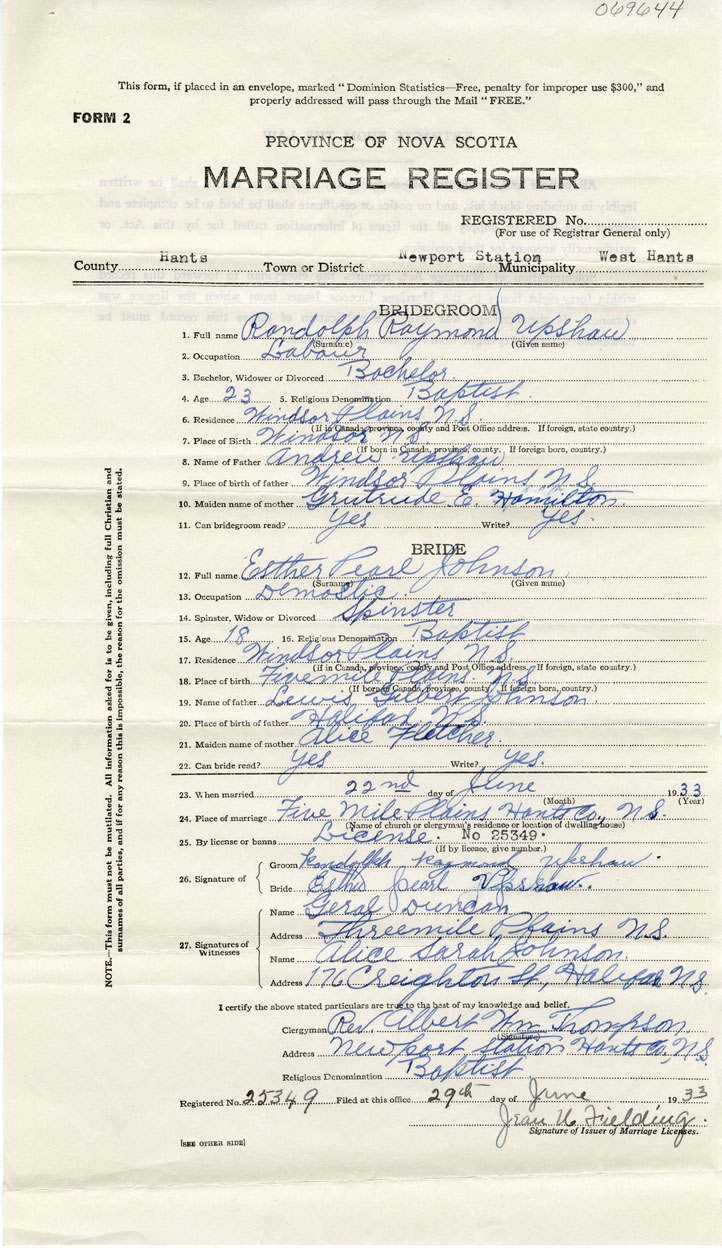 069644
This form, if placed in an envelope, marked "Dominion Statistics—Free, penalty for improper use $300," and
properly addressed will pass through the Mail "FREE."
FORM 2
PROVINCE OF NOVA SCOTIA
MARRIAGE REGISTER
REGISTERED No.
(For use of Registrar General only)
County Hants Town or District Newport Station Municipality West Hants
BRIDEGROOM
1. Full name Randolph Raymond Upshaw
(Surname) (Given name)
2. Occupation Labour
3. Bachelor, Widower or Divorced Bachelor
4. Age 23 5. Religious Denomination Baptist
6. Residence Windsor Plains N.S.
(If in Canada, province, county and Post Office address. If foreign, state country.)
7. Place of Birth Windsor N.S.
(If born in Canada, province, county. If foreign born, country.)
8. Name of Father Andrew Upshaw
9. Place of birth of father Windsor Plains N.S.
10. Maiden name of mother Grutrude E. Hamilton
11. Can bridegroom read? Yes Write? Yes.
BRIDE
12. Full name Esther Pearl Johnson
(Surname) (Given name)
13. Occupation Demostic
14. Spinster, Widow or Divorced Spinster
15. Age 18 16. Religious Denomination Baptist
17. Residence Windsor Plains N.S.
(If in Canada, province, county and Post Office address. If foreign, state country.)
18. Place of birth Fivemile Plains. N.S.
(If born in Canada, province, county. If foreign born, country.)
19. Name of father Lewis Gilbert Johnson.
20. Place of birth of father Halifax N.S.
21. Maiden name of mother Alice Fletcher
22. Can bride read? Yes Write? Yes.
23. When married 22nd day of June 1933
(Month) (Year)
24. Place of marriage Five Mile Plains Hants Co., N.S.
(Name of church or clergyman's residence or location of dwelling house)
25. By license or banns License. No 25349.
(If by licence, give number.)
26. Signature of
Groom Randolph Raymond Upshaw.
Bride Esther Pearl Upshaw.
27. Signatures of Witnesses
Name Geral Duncan
Address Threemile Plains N.S.
Name Alice Sarah Johnson.
Address 176 Creighton St, Halifax N.S.
I certify the above stated particulars are true to the best of my knowledge and belief.
Clergyman Rev. Albert Wm Thompson
(Signature)
Address Newport Station Hants Co, N.S.
Religious Denomination Baptist
Registered No. 25349 Filed at this office 29th day of June 1933
Jean U. Fielding.
Signature of Issuer of Marriage Licenses.
[SEE OTHER SIDE]
NOTE.—This form must not be mutilated. All information asked for is to be given, including full Christian and
surnames of all parties, and if for any reason this is impossible, the reason for the omission must be stated.